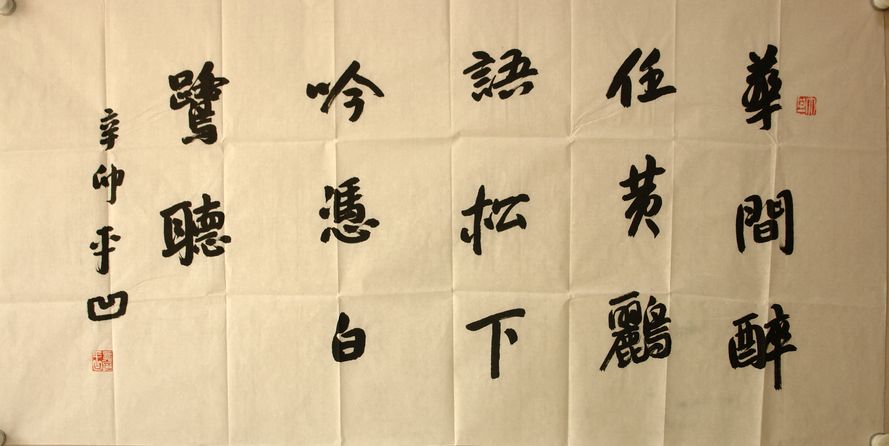 華間醉
任黄鸝
語松下
吟憑白
鷺聽
辛卯平凹